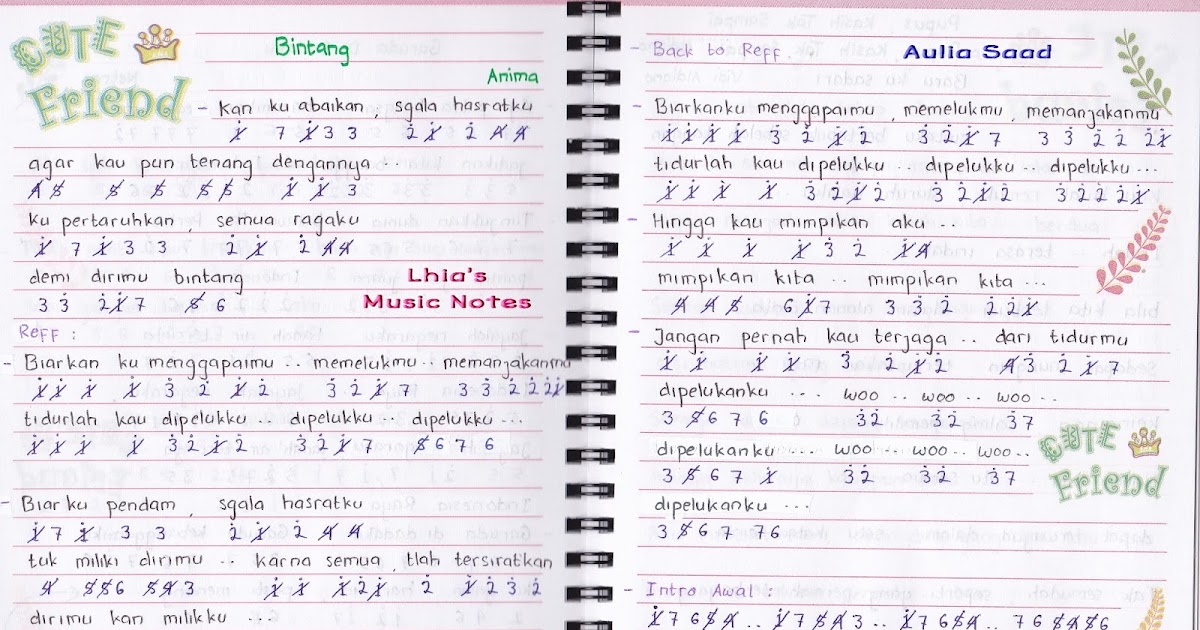 CUTE
Friend
Bintang
Anima
- Kan ku abaikan , sgala hasratku
1 7 1 3 3 2 1 2 4 4
agar kau pun tenang dengannya ...
4 5 5 5 5 5 5 1 1 3
ku pertaruhkan , semua ragaku
1 7 1 3 3 2 1 2 4 4
demi dirimu bintang
3 3 2 1 7 5 6
Lhia's
Music Notes
Reff :
- Biarkan ku menggapaimu .. memelukmu .. memanjakanmu
1 1 1 1 3 2 1 2 3 2 1 7 3 3 2 2 2 1
tidurlah kau dipelukku .. dipelukku .. dipelukku ...
1 1 1 1 3 2 1 2 3 2 1 7 5 6 7 6
- Biar ku pendam , sgala hasratku
1 7 1 3 3 2 1 2 4 4
tuk miliki dirimu .. karna semua tlah tersiratkan
4 5 5 6 5 4 3 1 1 1 2 1 2 1 2 3 2
dirimu kan milikku ...
- Back to Reff . .
Aulia Saad
- Biarkanku menggapaimu , memelukmu , memanjakanmu
1 1 1 1 3 2 1 2 3 2 1 7 3 3 2 2 2 1
tidurlah kau dipelukku .. dipelukku .. dipelukku ...
1 1 1 1 3 2 1 2 3 2 1 2 3 2 2 2 1
- Hingga kau mimpikan aku ..
1 1 1 1 3 2 1 4
mimpikan kita .. mimpikan kita ...
4 4 5 6 1 7 3 3 2 2 2 1
- Jangan pernah kau terjaga .. dari tidurmu
1 1 1 1 3 2 1 1 4 3 2 1 7
dipelukanku ... woo .. woo .. woo ..
3 5 6 7 6 3 2 3 2 3 7
dipelukanku ... woo .. woo .. woo ..
3 5 6 7 1 3 2 3 2 3 7
dipelukanku ...
3 5 6 7 7 6
CUTE
Friend
- Intro Awal :
1 7 6 5 4 .. 1 7 5 4 3 .. 1 7 6 5 4 .. 7 6 5 4 5 6